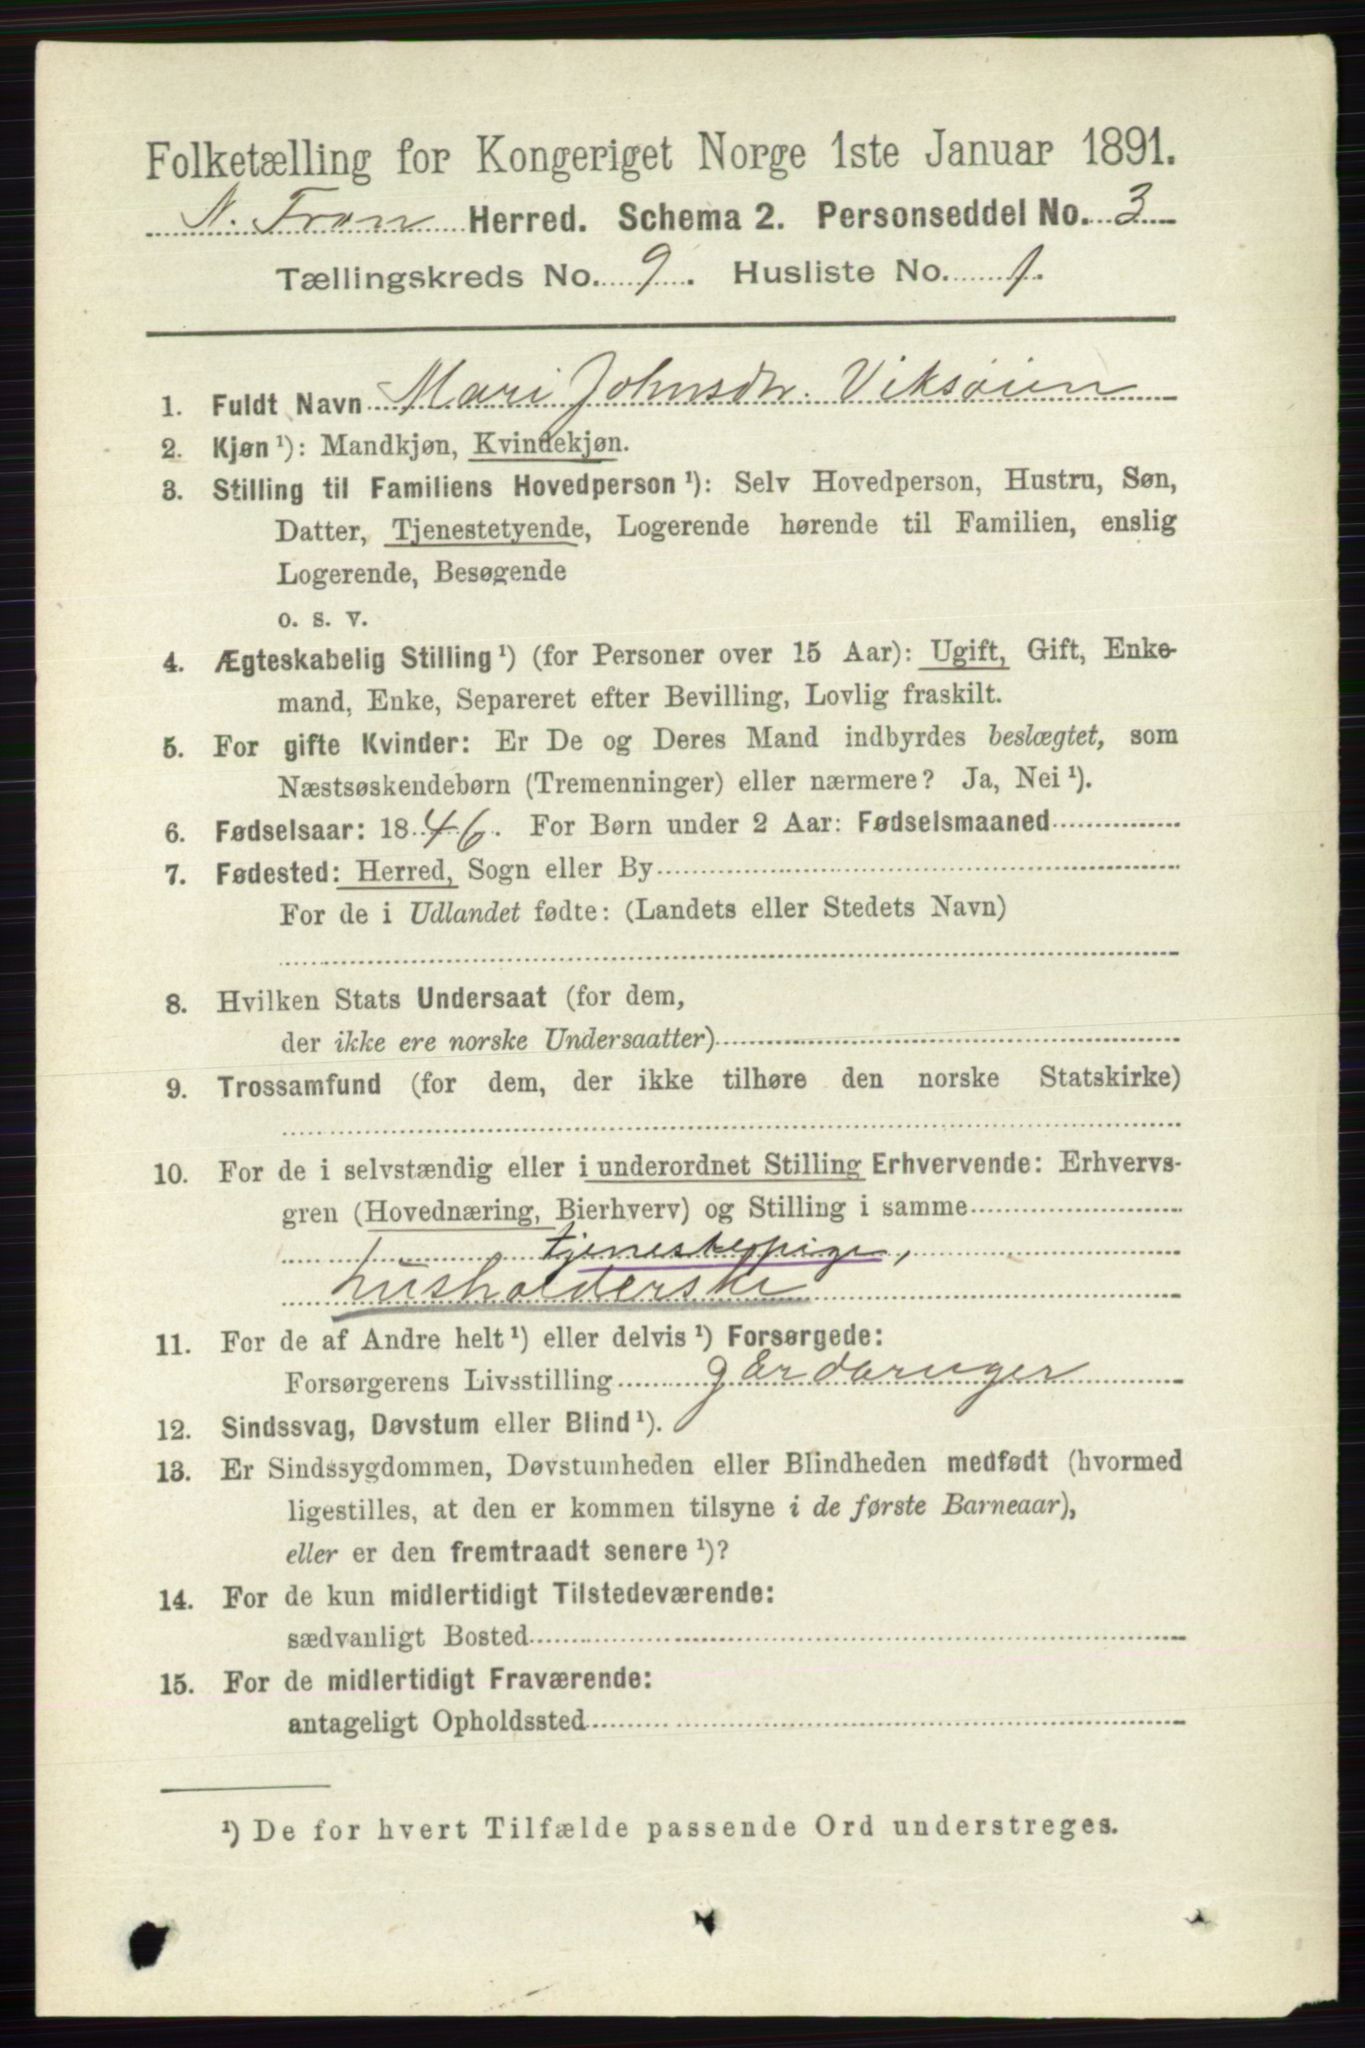 Folketælling for Kongeriget Norge 1ste Januar 1891.
N. Fron Herred. Schema 2. Personseddel No. 3
Tællingskreds No. 9. Husliste No. 1.
1. Fuldt Navn Mari Johnsdtr. Viksøien
2. Kjøn ¹): Mandkjøn, Kvindekjøn.
3. Stilling til Familiens Hovedperson ¹): Selv Hovedperson, Hustru, Søn,
Datter, Tjenestetyende, Logerende hørende til Familien, enslig
Logerende, Besøgende
o. s. v.
4. Ægteskabelig Stilling ¹) (for Personer over 15 Aar): Ugift, Gift, Enke-
mand, Enke, Separeret efter Bevilling, Lovlig fraskilt.
5. For gifte Kvinder: Er De og Deres Mand indbyrdes beslægtet, som
Næstsøskendebørn (Tremenninger) eller nærmere? Ja, Nei ¹).
6. Fødselsaar: 1846. For Børn under 2 Aar: Fødselsmaaned
7. Fødested: Herred, Sogn eller By
For de i Udlandet fødte: (Landets eller Stedets Navn)
8. Hvilken Stats Undersaat (for dem,
der ikke ere norske Undersaatter)
9. Trossamfund (for dem, der ikke tilhøre den norske Statskirke)
10. For de i selvstændig eller i underordnet Stilling Erhvervende: Erhvervs-
gren (Hovednæring, Bierhverv) og Stilling i samme
tjenestepige,
husholderske
11. For de af Andre helt ¹) eller delvis ¹) Forsørgede:
Forsørgerens Livsstilling gardbruger
12. Sindssvag, Døvstum eller Blind ¹).
13. Er Sindssygdommen, Døvstumheden eller Blindheden medfødt (hvormed
ligestilles, at den er kommen tilsyne i de første Barneaar),
eller er den fremtraadt senere ¹)?
14. For de kun midlertidigt Tilstedeværende:
sædvanligt Bosted
15. For de midlertidigt Fraværende:
antageligt Opholdssted
¹) De for hvert Tilfælde passende Ord understreges.